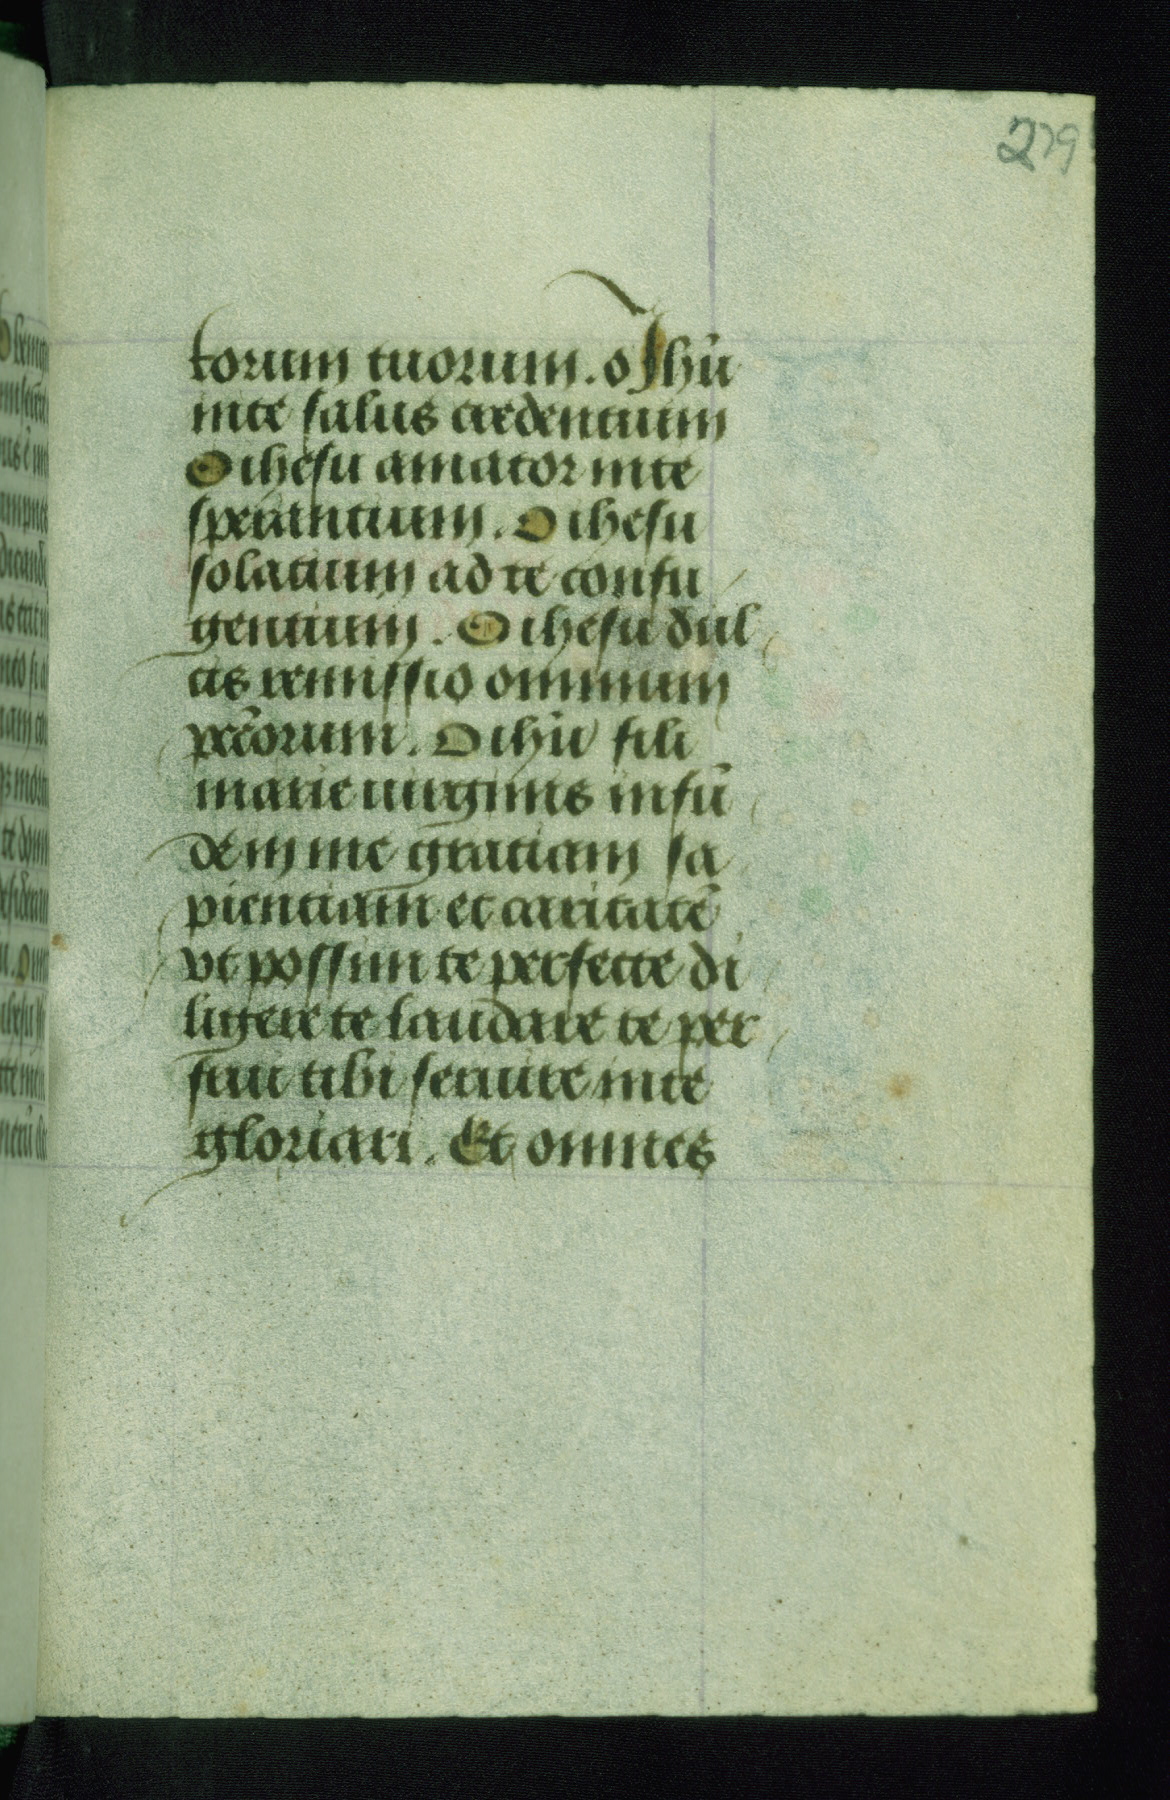 279
torum tuorum. o Jhū
inte salus credentium
O ihesu amator inte
sperantium. O ihesu
solatium ad te confu
gentium. O ihesu dul
cis remissio omnium
pccōrum. O ihū fili
marie uirginis infū
de in me gratiam sa
pientiam et caritatē
vt possim te perfecte di
ligere te laudare te per
frui tibi seruire inte
gloriari. Et omnes